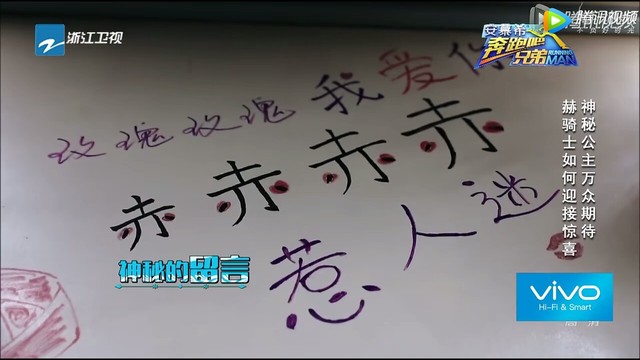 浙江卫视
腾讯视频
安慕希
奔跑吧
兄弟
RUNNING
MAN
玫瑰玫瑰我爱你
赤赤赤赤
惹人迷
神秘的留言
神秘公主万众期待
赫骑士如何迎接惊喜
vivo
Hi-Fi & Smart